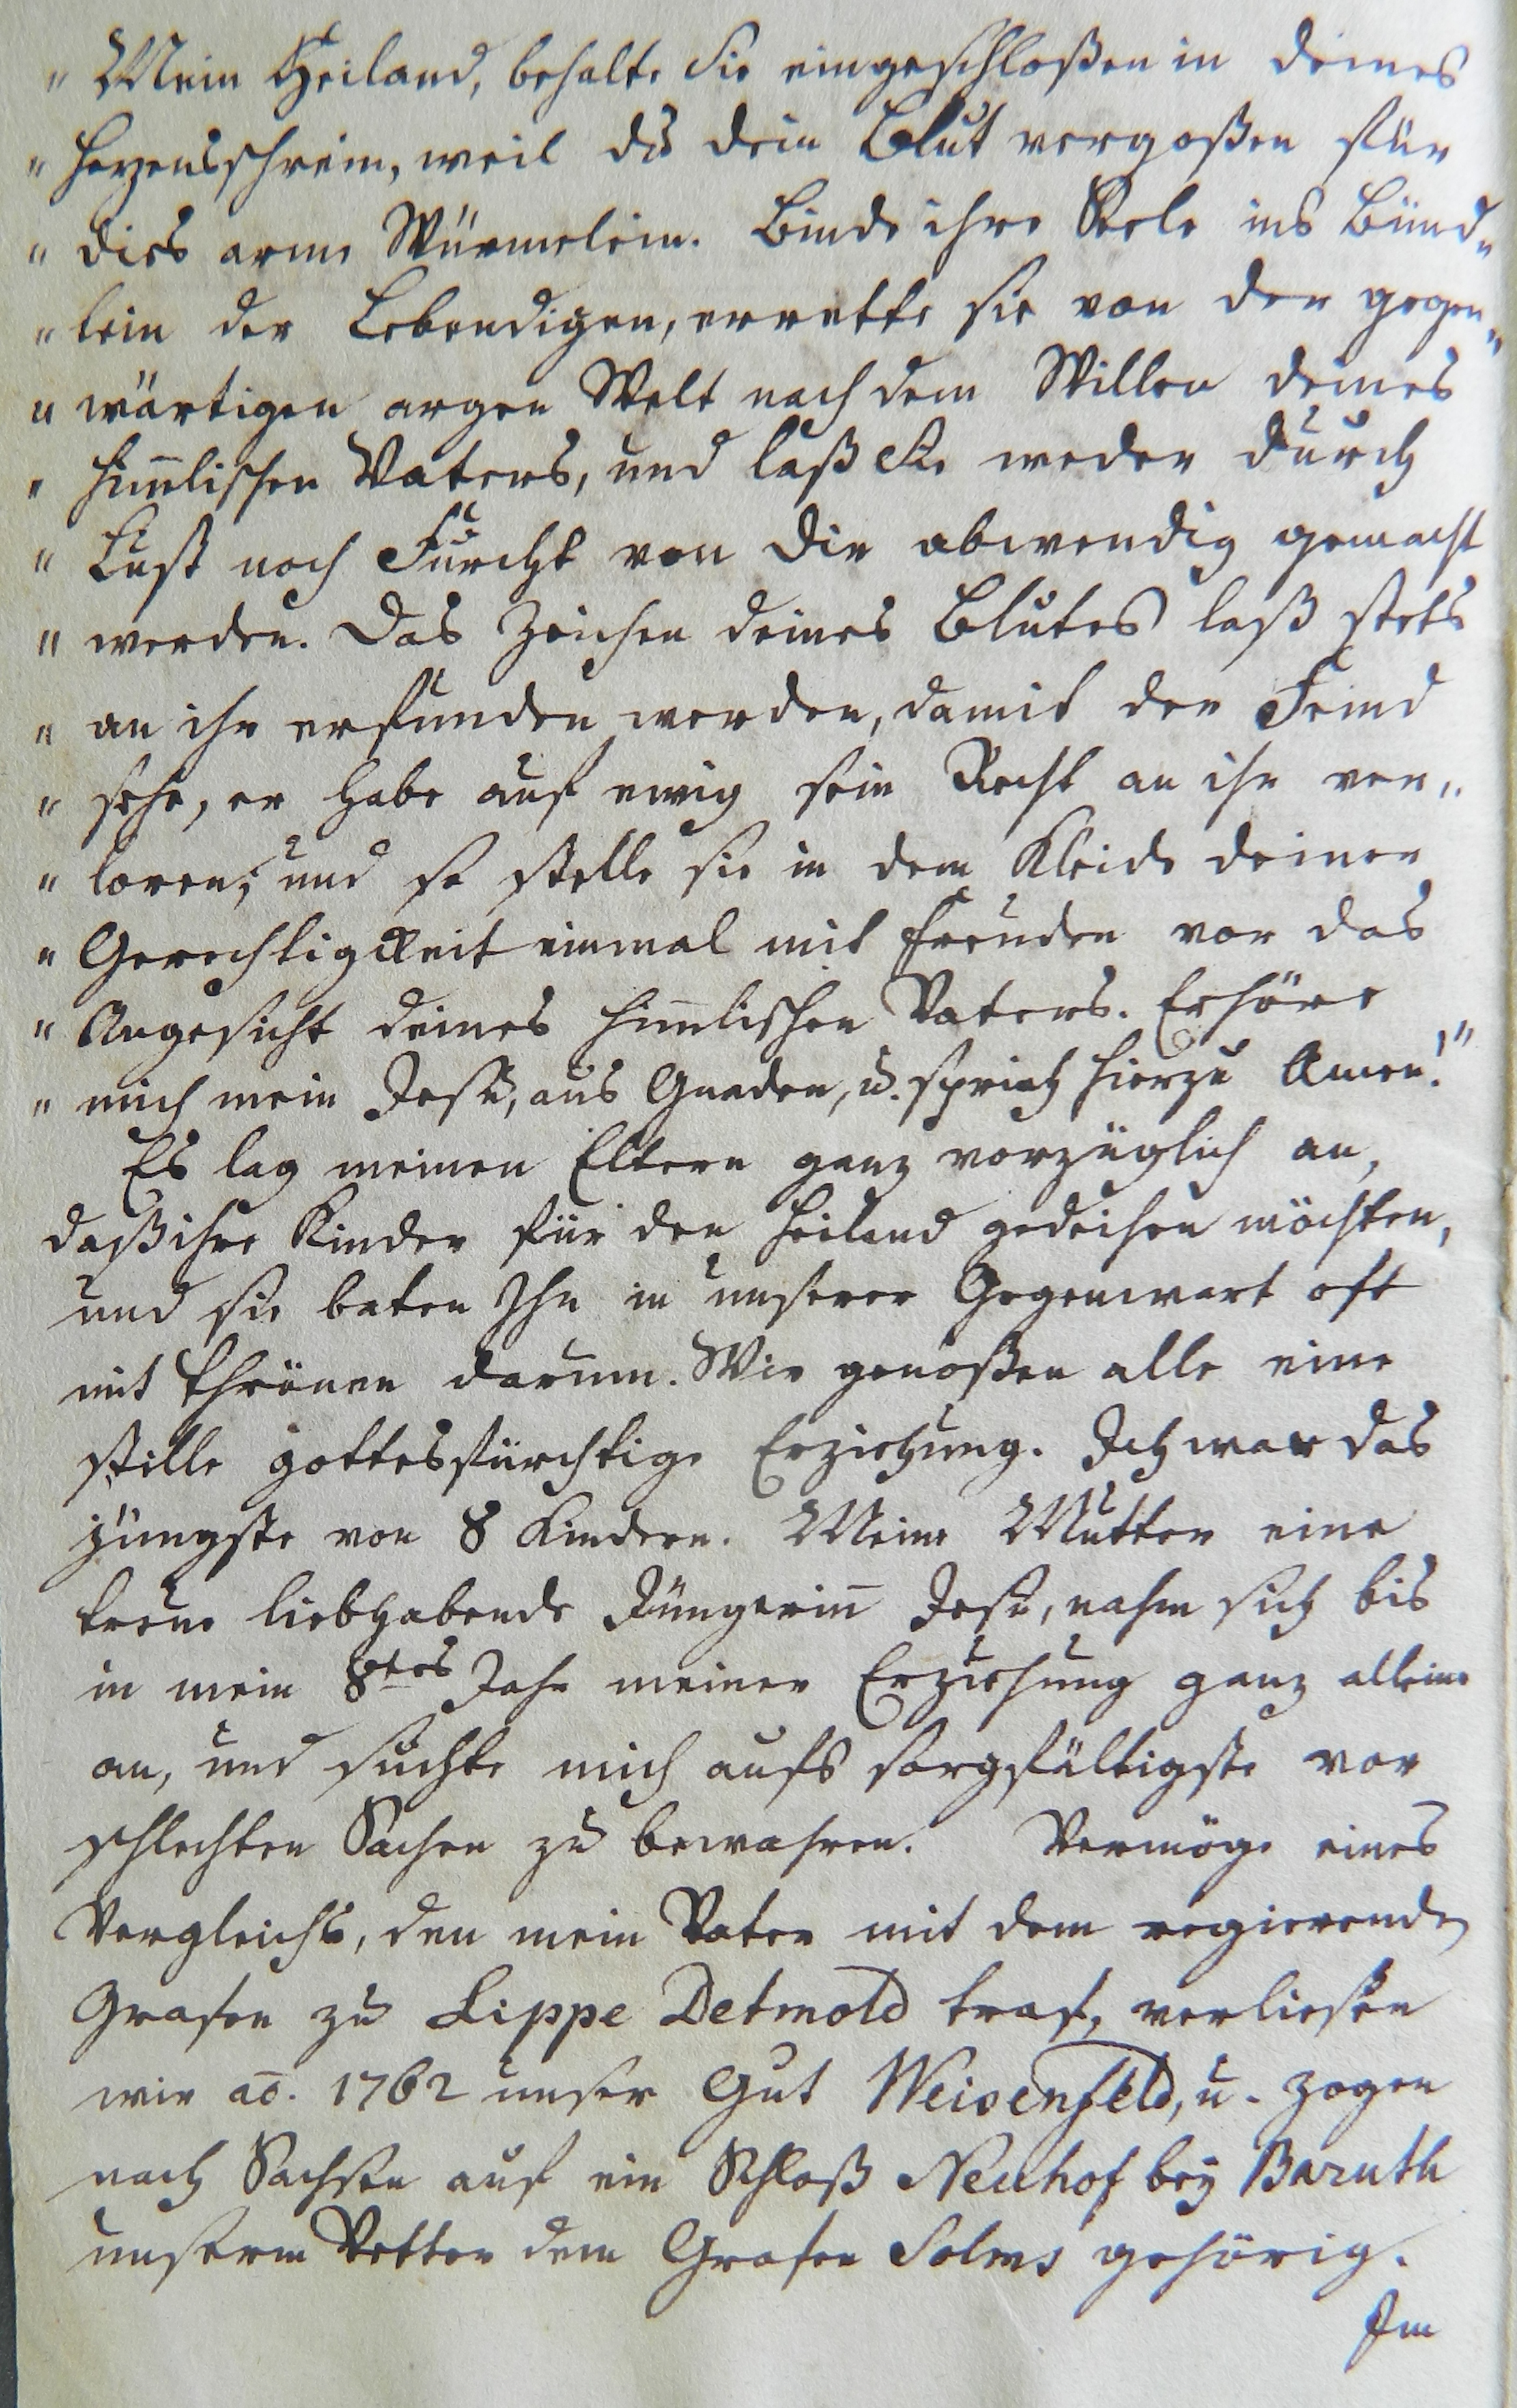 " Mein Heiland, behalte Sie eingeschloßen in deines
" Herzensschrein, weil du dein Blut vergoßen für
" dies arme Würmelein. Binde ihre Seele ins Bünd„
" lein der Lebendigen, errette sie von der gegen„
" wärtigen argen Welt nach dem Willen deines
" him̅lischen Vaters, und laß Sie weder durch
" Lust noch Furcht von Dir abwendig gemacht
" werden. Das Zeichen deines Blutes laß stets
" an ihr erfunden werden, damit der Feind
" sehe, er habe auf ewig sein Recht an ihr ver„
" loren; und so stelle sie in dem Kleide deiner
" Gerechtigkeit einmal mit Freuden vor das
" Angesicht deines him̅lischen Vaters. Erhöre
" mich mein Jesu, aus Gnaden, u. sprich hierzu Amen!"
Es lag meinen Eltern ganz vorzüglich an,
daß ihre Kinder für den Heiland gedeihen möchten,
und sie baten Ihn in unserer Gegenwart oft
mit Thränen darum. Wir genoßen alle eine
stille gottesfürchtige Erziehung. Ich war das
jüngste von 8 Kindern. Meine Mutter eine
treue liebhabende Jüngerin̅ Jesu, nahm sich bis
in mein 8tes Jahr meiner Erziehung ganz alleine
an, und suchte mich aufs sorgfältigste vor
schlechten Sachen zu bewahren. Vermöge eines
Vergleichs, den mein Vater mit dem regierenden
Grafen zu Lippe Detmold traf, verließen
wir ao. 1762 unser Gut Weisenfeld, u. zogen
nach Sachsen auf ein Schloß Neuhof bey Baruth
unserm Vetter dem Grafen Solms gehörig.
Im